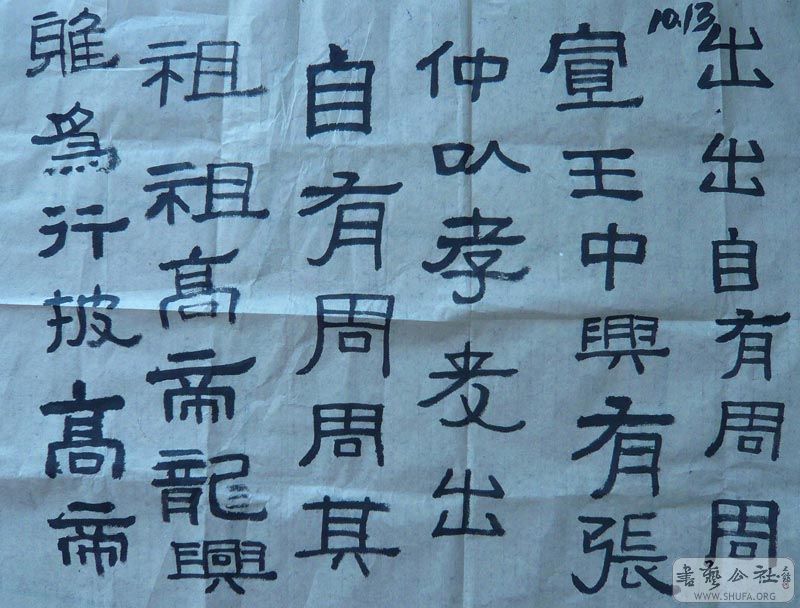 10.13
出出自有周周
宣王中興有張
仲以孝友出
自有周周其
祖祖高帝龍興
雖為行披高帝
書藝公社
WWW.SHUFA.ORG